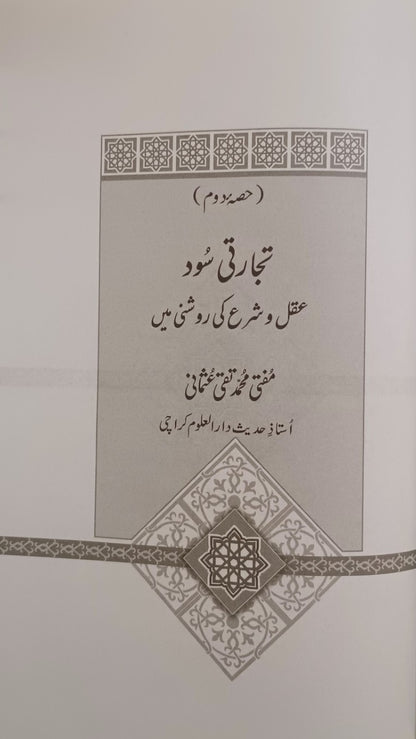 (حصۂ دوم)
تجارتی سُود
عقل و شرع کی روشنی میں
مُفتی مُحمّد تقی عُثمانی
اُستاذِ حدیث دارالعلوم کراچی